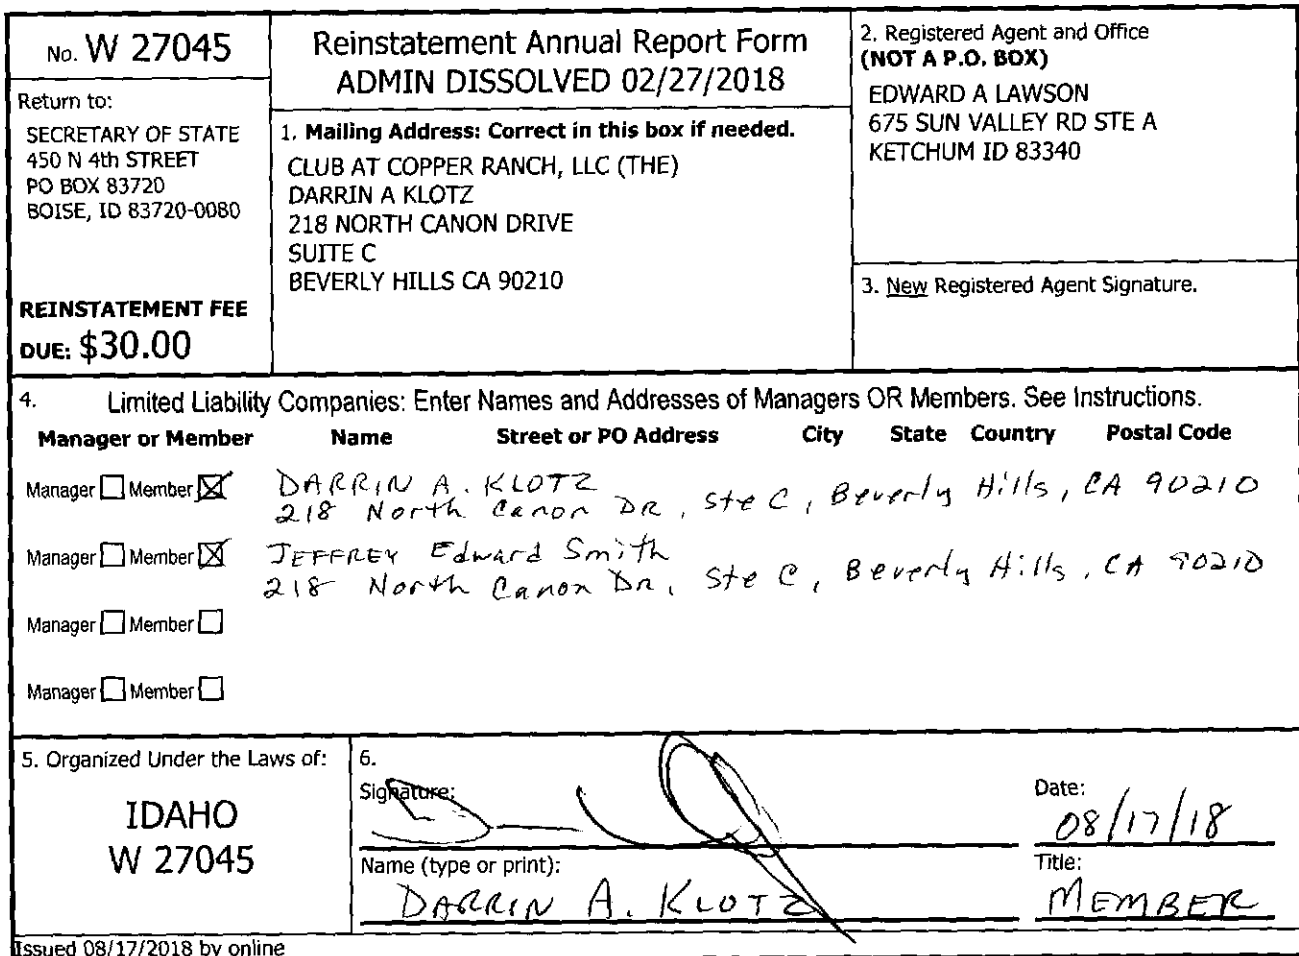 No. W 27045
Return to:
SECRETARY OF STATE
450 N 4th STREET
PO BOX 83720
BOISE, ID 83720-0080
REINSTATEMENT FEE
DUE: $30.00
Reinstatement Annual Report Form
ADMIN DISSOLVED 02/27/2018
1. Mailing Address: Correct in this box if needed.
CLUB AT COPPER RANCH, LLC (THE)
DARRIN A KLOTZ
218 NORTH CANON DRIVE
SUITE C
BEVERLY HILLS CA 90210
2. Registered Agent and Office
(NOT A P.O. BOX)
EDWARD A LAWSON
675 SUN VALLEY RD STE A
KETCHUM ID 83340
3. New Registered Agent Signature.
4. Limited Liability Companies: Enter Names and Addresses of Managers OR Members. See Instructions.
Manager or Member Name Street or PO Address City State Country Postal Code
Manager Member DARRIN A. KLOTZ
218 North Canon DR, Ste C, Beverly Hills, CA 90210
Manager Member JEFFREY Edward Smith
218 North Canon Dr, Ste C, Beverly Hills, CA 90210
Manager Member
Manager Member
5. Organized Under the Laws of:
IDAHO
W 27045
6.
Signature:
Date:
08/17/18
Name (type or print):
DARRIN A. KLOTZ
Title:
MEMBER
Issued 08/17/2018 by online